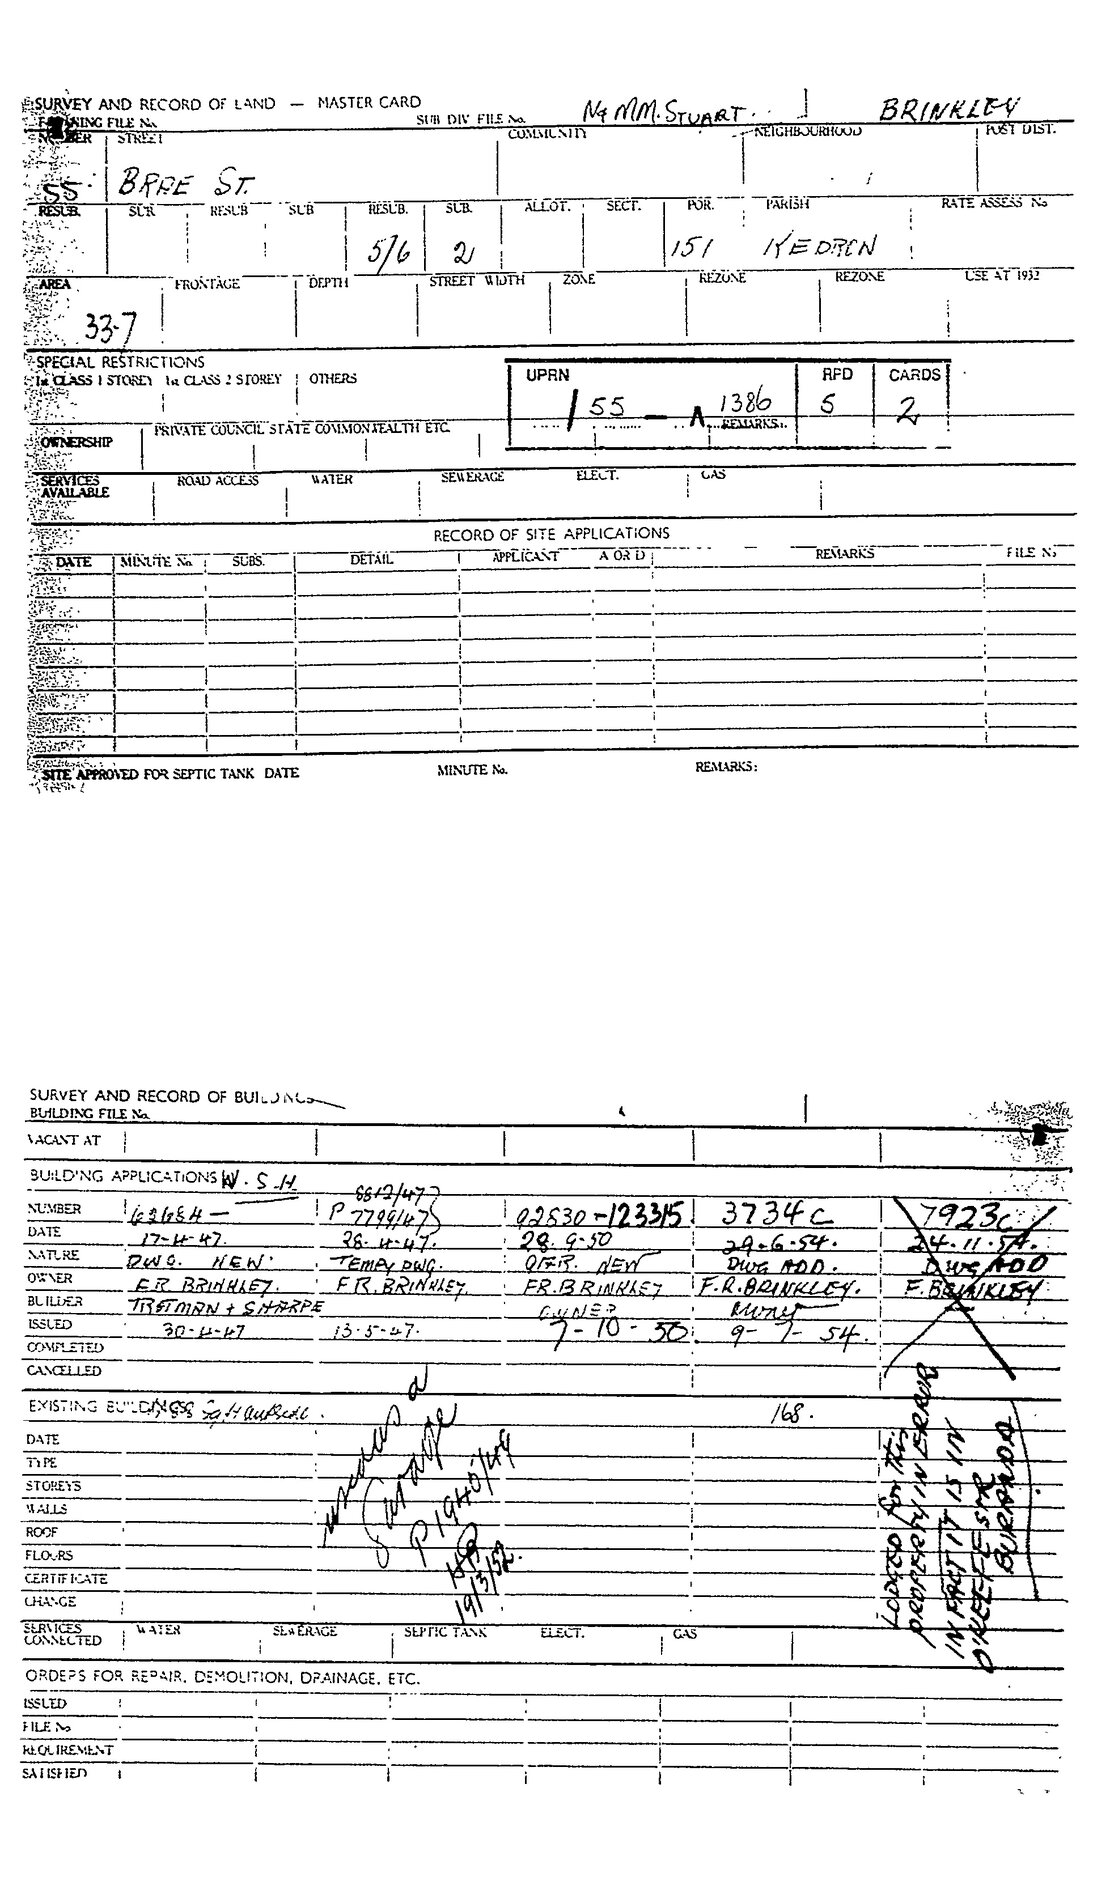 SURVEY AND RECORD OF LAND — MASTER CARD
FILE No. SUB DIV FILE No. N & MM. STUART. BRINKLEY
NUMBER STREET COMMUNITY NEIGHBOURHOOD POST DIST.
55 BRAE ST.
RESUB. SUB. RESUB SUB RESUB. SUB. ALLOT. SECT. POR. PARISH RATE ASSESS No
5/6 2 151 KEDRON
AREA FRONTAGE DEPTH STREET WIDTH ZONE REZONE REZONE USE AT 1932
33·7
SPECIAL RESTRICTIONS
1st CLASS 1 STOREY 1st CLASS 2 STOREY OTHERS
UPRN RPD CARDS
/ 55 — A 1386 5 2
REMARKS
OWNERSHIP PRIVATE COUNCIL STATE COMMONWEALTH ETC.
SERVICES AVAILABLE ROAD ACCESS WATER SEWERAGE ELECT. GAS
RECORD OF SITE APPLICATIONS
DATE MINUTE No. SUBS. DETAIL APPLICANT A OR D REMARKS FILE No
SITE APPROVED FOR SEPTIC TANK DATE MINUTE No. REMARKS:
SURVEY AND RECORD OF BUILDINGS
BUILDING FILE No.
VACANT AT
BUILDING APPLICATIONS W.S.H
8812/47
NUMBER 63684 — P 7799/47 92830 - 123315 3734c 7923c
DATE 17-4-47. 28-4-47. 28.9-50 29.6.54. 24.11.54.
NATURE DWG. NEW TEMPY DWG. NEW DWG ADD. DWG ADD
OWNER F.R. BRINKLEY. F R. BRINKLEY. FR. BRINKLEY F.R. BRINKLEY. F. BRINKLEY
BUILDER TRETMAN + SHARPE OWNER Owner
ISSUED 30-4-47 13-5-47. 7-10-50 9-7-54.
COMPLETED
CANCELLED
EXISTING BUILDINGS 168.
DATE
TYPE
STOREYS
WALLS
ROOF
FLOORS
CERTIFICATE
CHANGE
used as a
Garage
P 1940/49
19/3/52.
LODGED for This
PROPERTY IN ERROR
IN FACT IT IS IN
O'KEEFE STR
BURANDA
SERVICES CONNECTED WATER SEWERAGE SEPTIC TANK ELECT. GAS
ORDERS FOR REPAIR, DEMOLITION, DRAINAGE, ETC.
ISSUED
FILE No
REQUIREMENT
SATISFIED